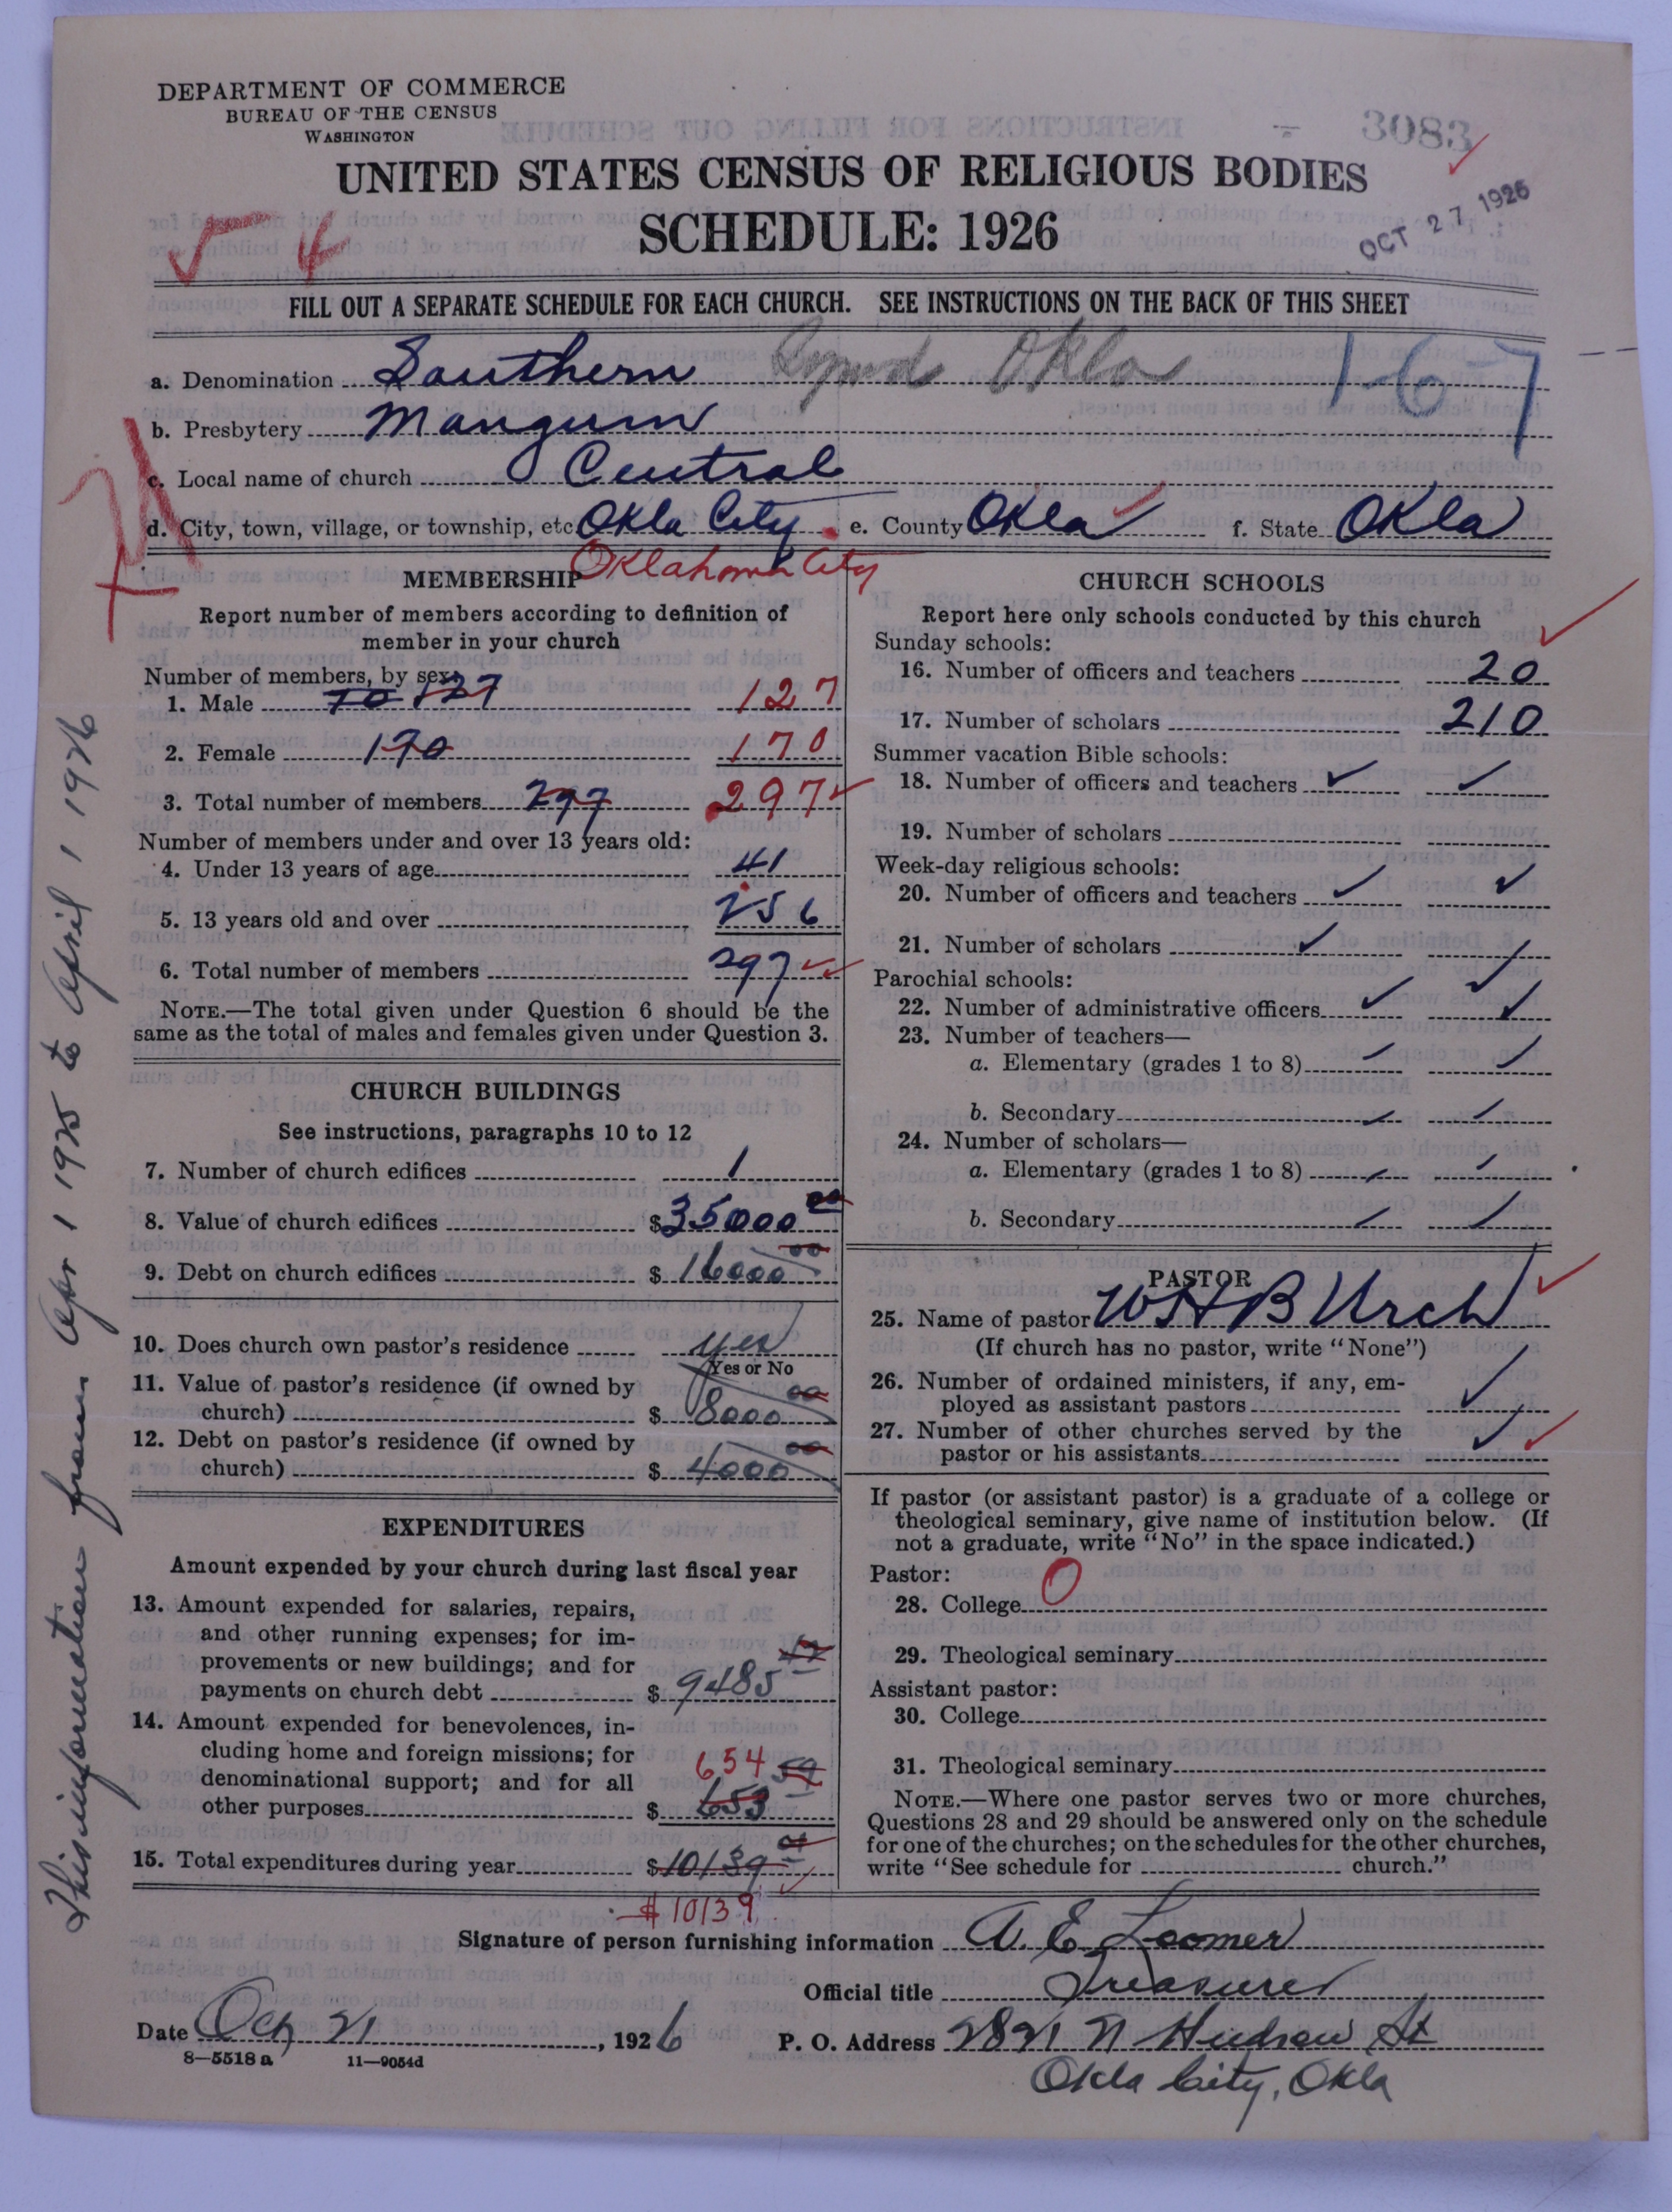 DEPARTMENT OF COMMERCE
BUREAU OF THE CENSUS
WASHINGTON
3083
UNITED STATES CENSUS OF RELIGIOUS BODIES
SCHEDULE: 1926
OCT 27 1926
4
FILL OUT A SEPARATE SCHEDULE FOR EACH CHURCH. SEE INSTRUCTIONS ON THE BACK OF THIS SHEET
a. Denomination Southern Synod Okla 1-67
b. Presbytery Mangum
c. Local name of church Central
d. City, town, village, or township, etc. Okla City e. County Okla f. State Okla
Oklahoma City
MEMBERSHIP
Report number of members according to definition of
member in your church
Number of members, by sex:
1. Male 70 127 127
2. Female 170 170
3. Total number of members 297 297
Number of members under and over 13 years old:
4. Under 13 years of age 41
5. 13 years old and over 256
6. Total number of members 297
NOTE.—The total given under Question 6 should be the
same as the total of males and females given under Question 3.
CHURCH BUILDINGS
See instructions, paragraphs 10 to 12
7. Number of church edifices 1
8. Value of church edifices $35000 00
9. Debt on church edifices $16000 00
10. Does church own pastor's residence yes
Yes or No
11. Value of pastor's residence (if owned by
church) $8000 00
12. Debt on pastor's residence (if owned by
church) $4000 00
EXPENDITURES
Amount expended by your church during last fiscal year
13. Amount expended for salaries, repairs,
and other running expenses; for im-
provements or new buildings; and for
payments on church debt $9485
14. Amount expended for benevolences, in-
cluding home and foreign missions; for
denominational support; and for all
other purposes $653 59 654
15. Total expenditures during year $10139
$10139
CHURCH SCHOOLS
Report here only schools conducted by this church
Sunday schools:
16. Number of officers and teachers 20
17. Number of scholars 210
Summer vacation Bible schools:
18. Number of officers and teachers
19. Number of scholars
Week-day religious schools:
20. Number of officers and teachers
21. Number of scholars
Parochial schools:
22. Number of administrative officers
23. Number of teachers—
a. Elementary (grades 1 to 8)
b. Secondary
24. Number of scholars—
a. Elementary (grades 1 to 8)
b. Secondary
PASTOR
25. Name of pastor W H B Urch
(If church has no pastor, write "None")
26. Number of ordained ministers, if any, em-
ployed as assistant pastors
27. Number of other churches served by the
pastor or his assistants
If pastor (or assistant pastor) is a graduate of a college or
theological seminary, give name of institution below. (If
not a graduate, write "No" in the space indicated.)
Pastor: 0
28. College
29. Theological seminary
Assistant pastor:
30. College
31. Theological seminary
NOTE.—Where one pastor serves two or more churches,
Questions 28 and 29 should be answered only on the schedule
for one of the churches; on the schedules for the other churches,
write "See schedule for church."
Signature of person furnishing information A. E. Loomer
Official title Treasurer
Date Oct 21, 1926 P. O. Address 2821 N Hudson St
Okla City, Okla
8-5518 a 11-9054d
This information from Apr 1 1925 to April 1 1926